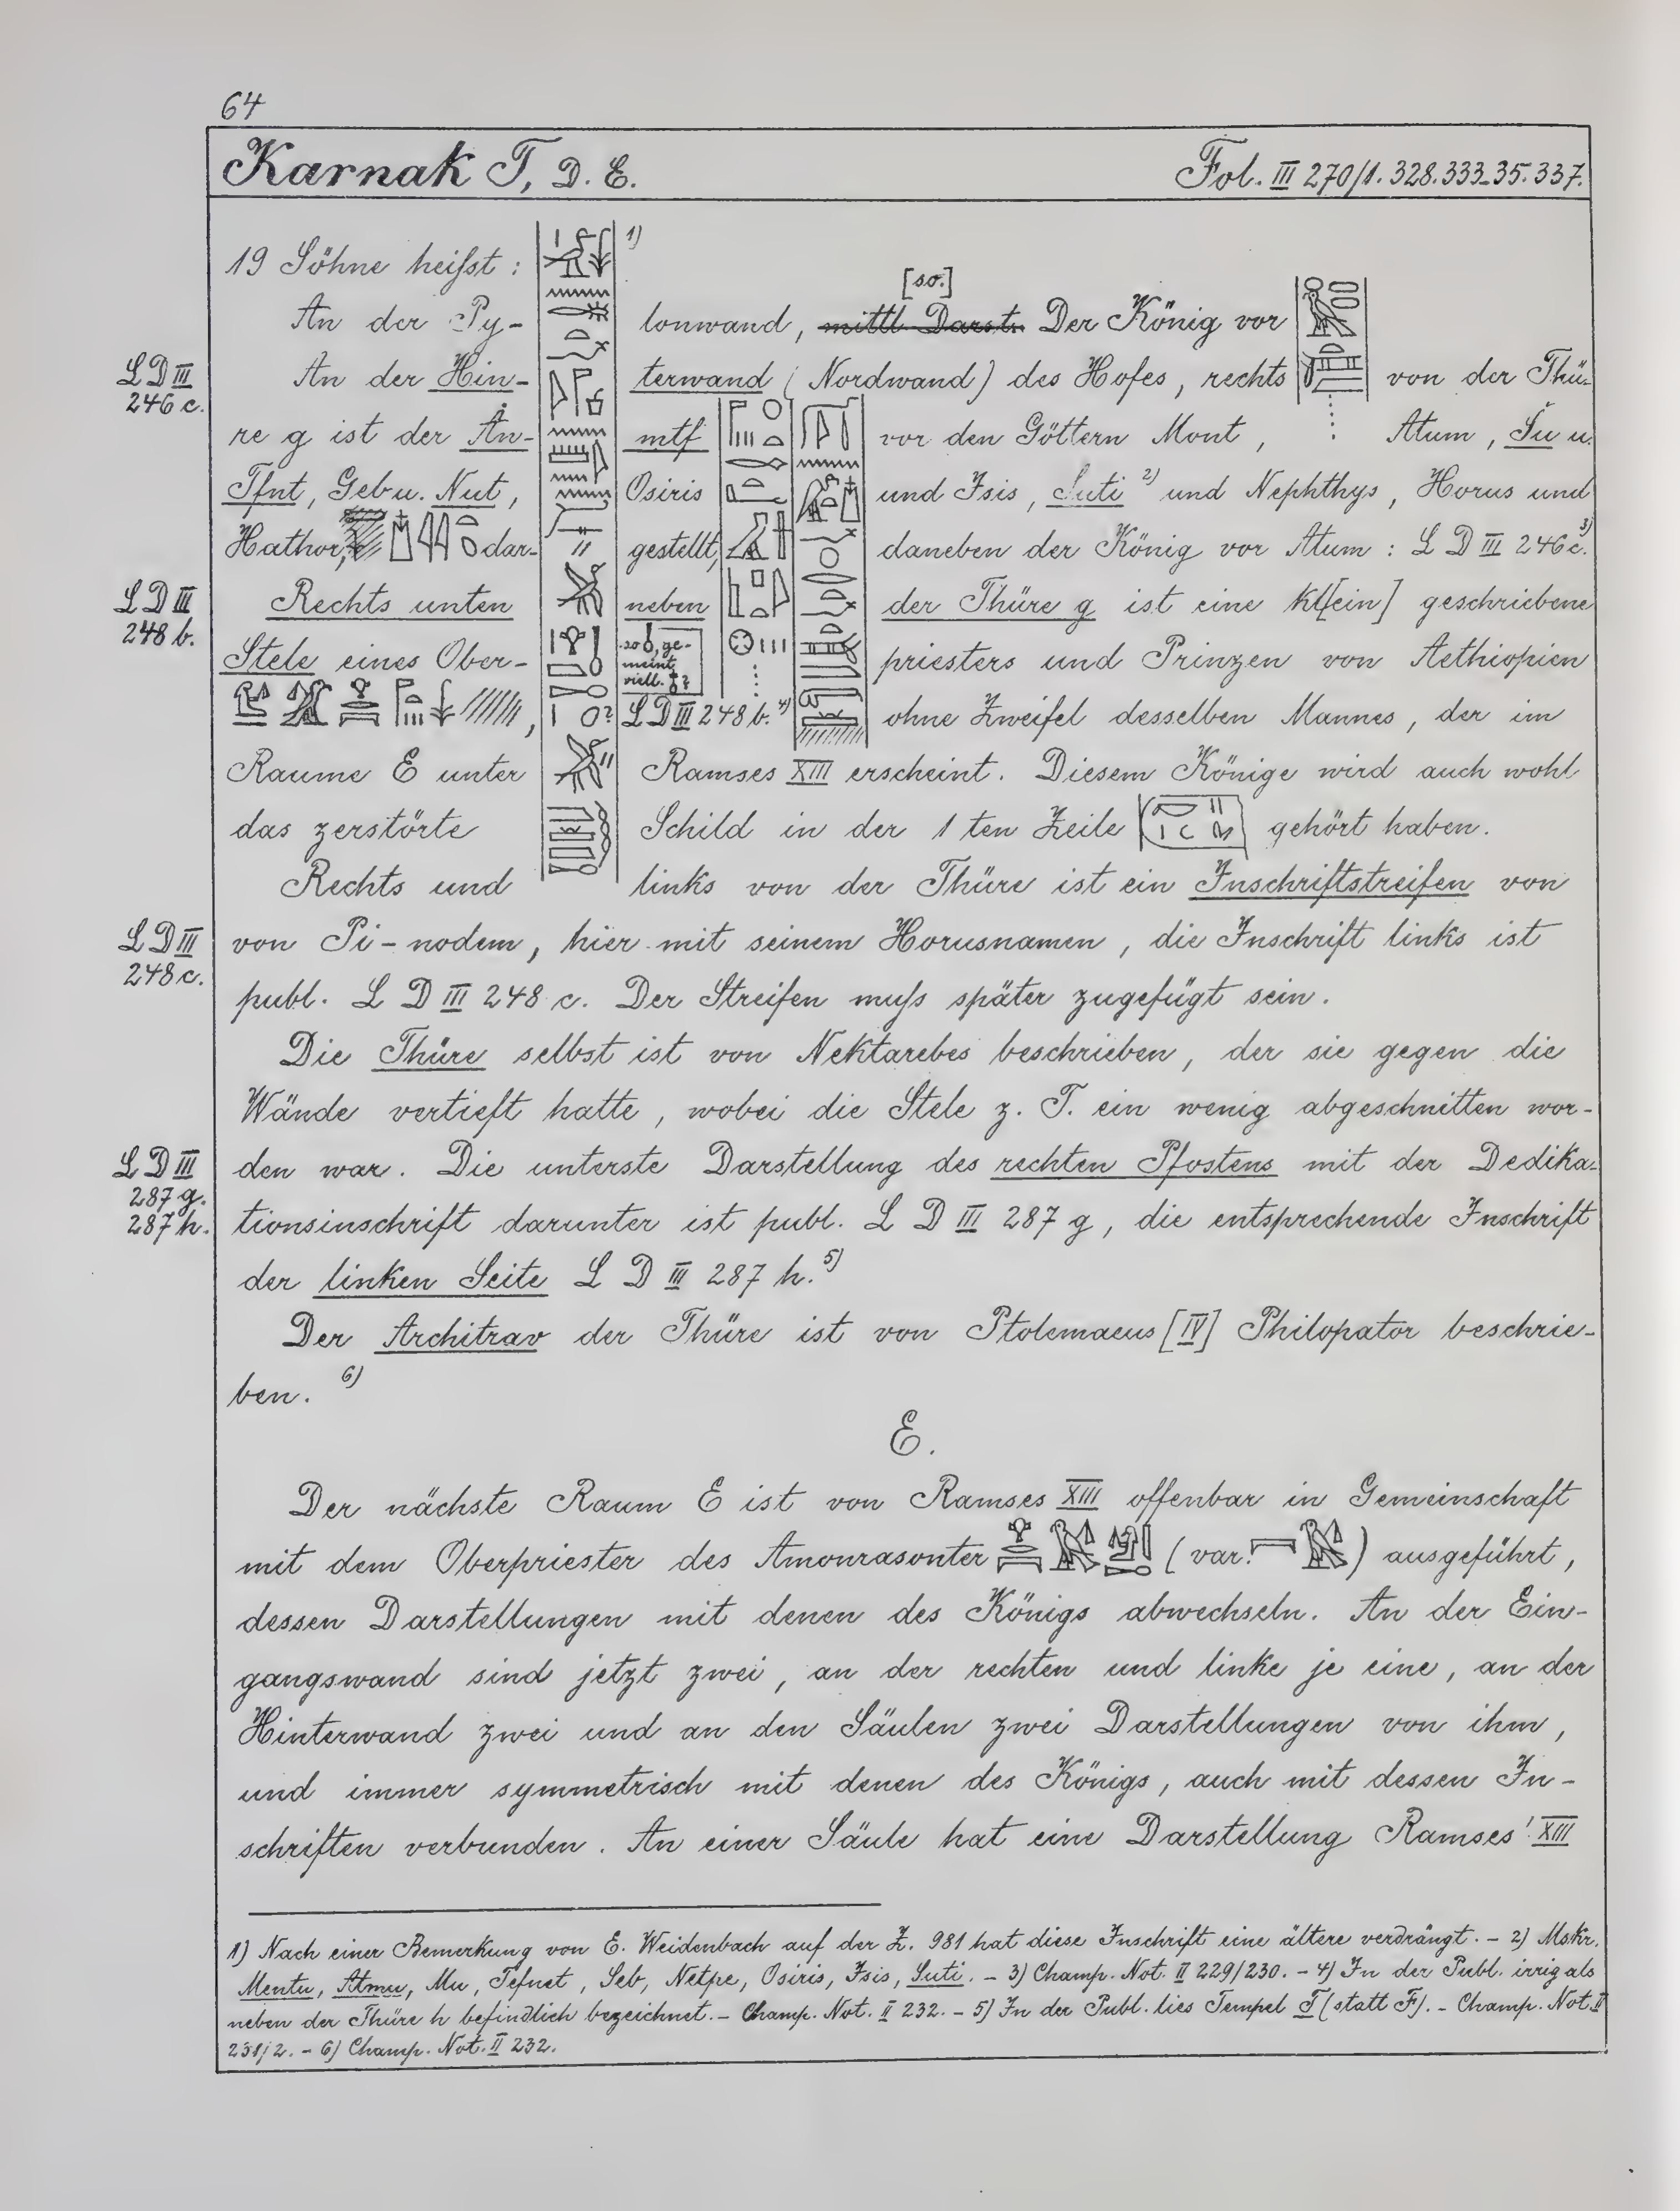 64
Karnak T, D. E. Fol. III 270/1. 328. 333-35. 337.
19 Söhne heifst : 1)
[so.]
An der Py- lonwand, mittl Darstn Der König vor
LD III 246 c. An der Hin- terwand (Nordwand) des Hofes, rechts von der Thü-
re g ist der Ȧn- mtf vor den Göttern Mont, Atum, Šu u.
Tfnt, Geb u. Nut, Osiris und Isis, Suti 2) und Nephthys, Horus und
Hathor, dar- gestellt, daneben der König vor Atum : L D III 246 c. 3)
LD III 248 b. Rechts unten neben der Thüre g ist eine kl[ein] geschriebene
Stele eines Ober- so, ge- meint viell. ? priesters und Prinzen von Aethiopien
, LD III 248 b. 4) ohne Zweifel desselben Mannes, der im
Raume E unter Ramses XIII erscheint. Diesem Könige wird auch wohl
das zerstörte Schild in der 1 ten Zeile gehört haben.
Rechts und links von der Thüre ist ein Inschriftstreifen von
LD III 248 c. von Pi-nodem, hier mit seinem Horusnamen, die Inschrift links ist
publ. L D III 248 c. Der Streifen mufs später zugefügt sein.
Die Thüre selbst ist von Nektarebes beschrieben, der sie gegen die
Wände vertieft hatte, wobei die Stele z. T. ein wenig abgeschnitten wor-
LD III 287 g. 287 h. den war. Die unterste Darstellung des rechten Pfostens mit der Dedika-
tionsinschrift darunter ist publ. L D III 287 g, die entsprechende Inschrift
der linken Seite L D III 287 h. 5)
Der Architrav der Thüre ist von Ptolemaeus [IV] Philopator beschrie-
ben. 6)
E.
Der nächste Raum E ist von Ramses XIII offenbar in Gemeinschaft
mit dem Oberpriester des Amonrasonter (var. ) ausgeführt,
dessen Darstellungen mit denen des Königs abwechseln. An der Ein-
gangswand sind jetzt zwei, an der rechten und linke je eine, an der
Hinterwand zwei und an den Säulen zwei Darstellungen von ihm,
und immer symmetrisch mit denen des Königs, auch mit dessen In-
schriften verbunden. An einer Säule hat eine Darstellung Ramses' XIII
1) Nach einer Bemerkung von E. Weidenbach auf der Z. 981 hat diese Inschrift eine ältere verdrängt. - 2) Mskr.
Mentu, Atmu, Mu, Tefnet, Seb, Netpe, Osiris, Isis, Suti. - 3) Champ. Not. II 229/230. - 4) In der Publ. irrig als
neben der Thüre h befindlich bezeichnet. - Champ. Not. II 232. - 5) In der Publ. lies Tempel T (statt F). - Champ. Not. II
231/2. - 6) Champ. Not. II 232.